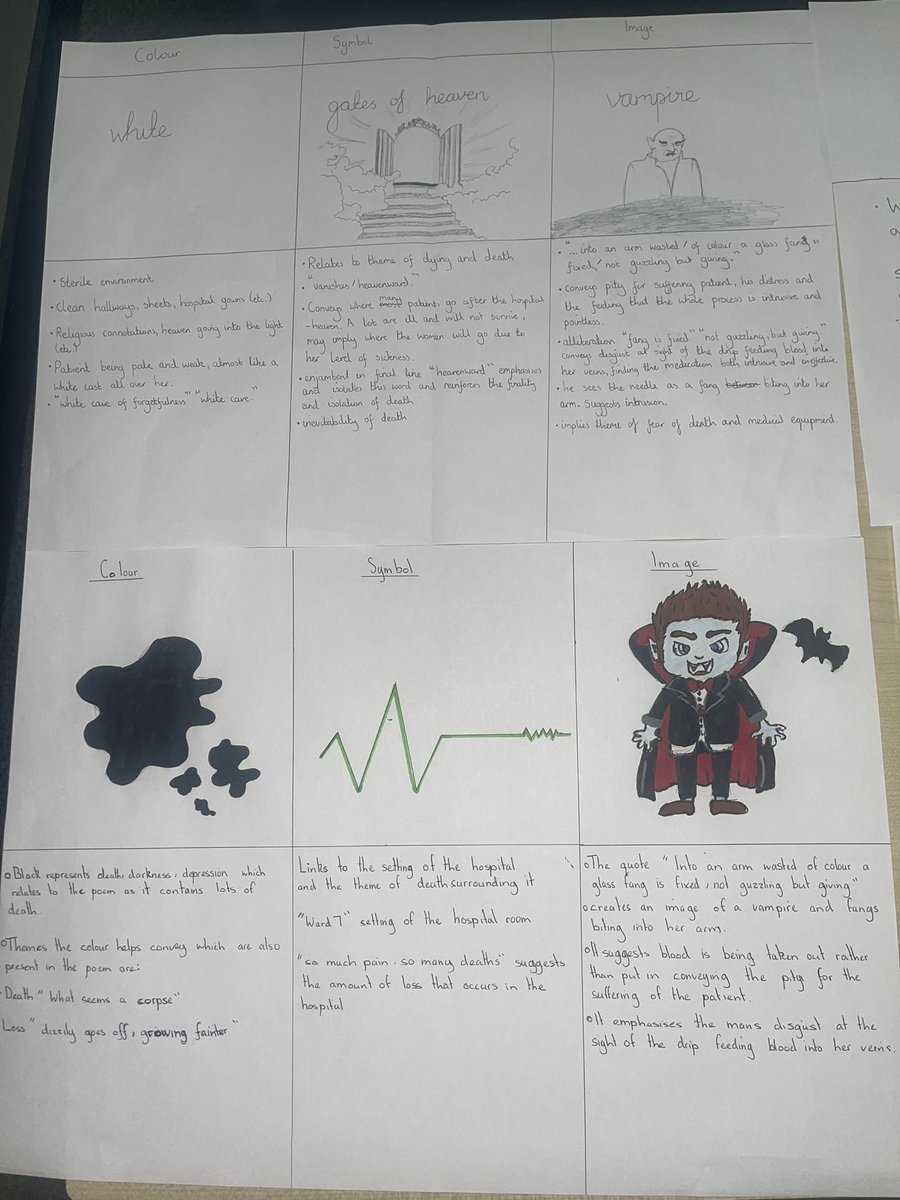 Colour
white
• Sterile environment
• Clean hallways, sheets, hospital gowns (etc.)
• Religious connotations, heaven going into the light
(etc.)
• Patient being pale and weak, almost like a
white cast all over her.
• "white cave of forgetfulness" "white cave."
Symbol
gates of heaven
• Relates to theme of dying and death
• "vanishes/heavenward."
• Conveys where many patients go after the hospital
-heaven. A lot are ill and will not survive,
may imply where the women will go due to
her level of sickness.
• enjambent in final line "heavenward" emphasises
and isolates this word and reinforces the finality
and isolation of death.
• inevitability of death
Image
vampire
• "...into an arm wasted/ of colour a glass fang is
fixed,/ not guzzling but giving."
• conveys pity for suffering patient, his distress and
the feeling that the whole process is intrusive and
pointless.
• alliteration "fang is fixed" "not guzzling, but giving."
conveys disgust at sight of the drip feeding blood into
her veins, finding the medication both intrusive and ineffective.
• he sees the needle as a fang biting into her
arm. Suggests intrusion.
• implies theme of fear of death and medical equipment.
Colour
o Black represents death, darkness, depression which
relates to the poem as it contains lots of
death.
o Themes the colour helps convey which are also
present in the poem are:
· Death "What seems a corpse"
Loss "dizzily goes off, growing fainter"
Symbol
Links to the setting of the hospital
and the theme of death surrounding it
"Ward 7" setting of the hospital room
"so much pain. so many deaths" suggests
the amount of loss that occurs in the
hospital
Image
o The quote "Into an arm wasted of colour a
glass fang is fixed, not guzzling but giving"
o creates an image of a vampire and fangs
biting into her arm.
o It suggests blood is being taken out rather
than put in conveying the pity for the
suffering of the patient.
o It emphasises the mans disgust at the
sight of the drip feeding blood into her veins.